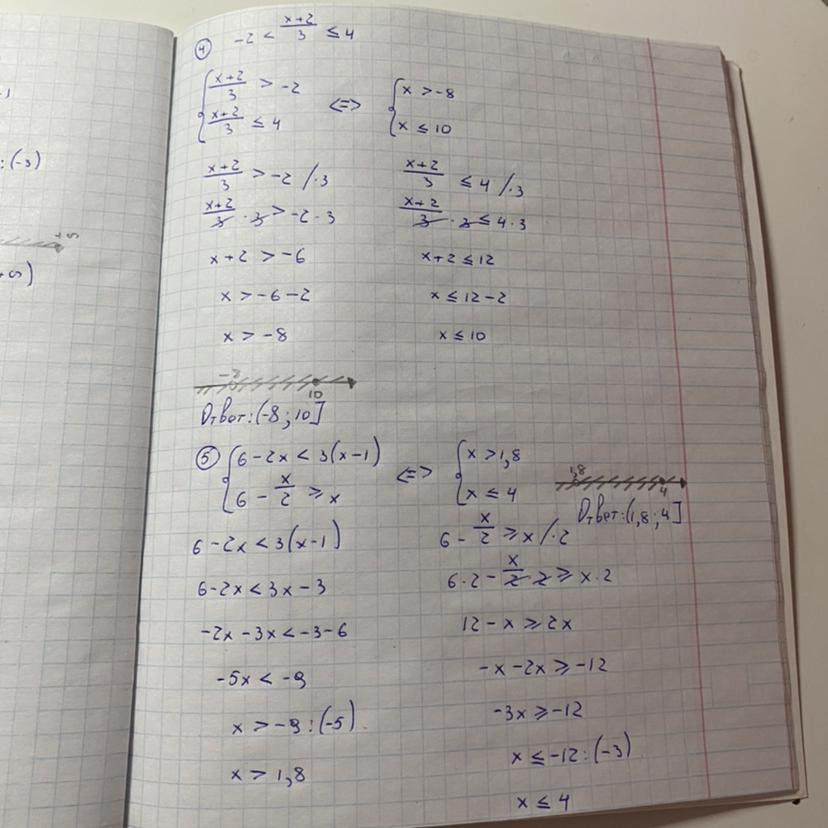 : (-3)
+∞
+∞)
④ -2 < (x+2)/3 ≤ 4
{ (x+2)/3 > -2
{ (x+2)/3 ≤ 4
<=>
{ x > -8
{ x ≤ 10
(x+2)/3 > -2 /·3
(x+2)/3 · 3 > -2 · 3
x+2 > -6
x > -6-2
x > -8
(x+2)/3 ≤ 4 /·3
(x+2)/3 · 3 ≤ 4·3
x+2 ≤ 12
x ≤ 12-2
x ≤ 10
10
Ответ: (-8; 10]
⑤ { 6-2x < 3(x-1)
{ 6 - x/2 ≥ x
<=>
{ x > 1,8
{ x ≤ 4
1,8
4
Ответ: (1,8; 4]
6-2x < 3(x-1)
6-2x < 3x-3
-2x-3x < -3-6
-5x < -9
x > -9 : (-5)
x > 1,8
6 - x/2 ≥ x /·2
6·2 - x/2 · 2 ≥ x·2
12-x ≥ 2x
-x-2x ≥ -12
-3x ≥ -12
x ≤ -12 : (-3)
x ≤ 4